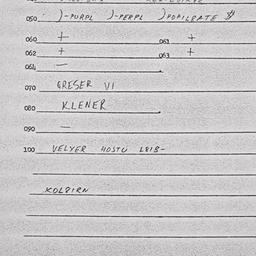 050 )-PURPL )-PERPL )POPILPATE $
060 + 061 +
062 + 063 +
064 —
070 GRESER VI
080 KLENER
090 —
100 VELYER HOSTU LBIB-
KOLBIRN